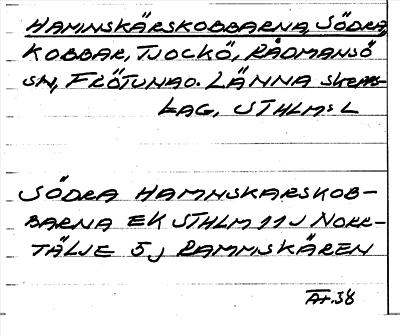 HAMNSKÄRSKOBBARNA, SÖDRA,
KOBBAR, TJOCKÖ, RÅDMANSÖ
SN, FRÖTUNA O. LÄNNA SKEPPS-
LAG, STHLMS L
SÖDRA HAMNSKARSKOB-
BARNA EK STHLM 11 J NORR-
TÄLJE 5 J RAMMSKÄREN
A+.38